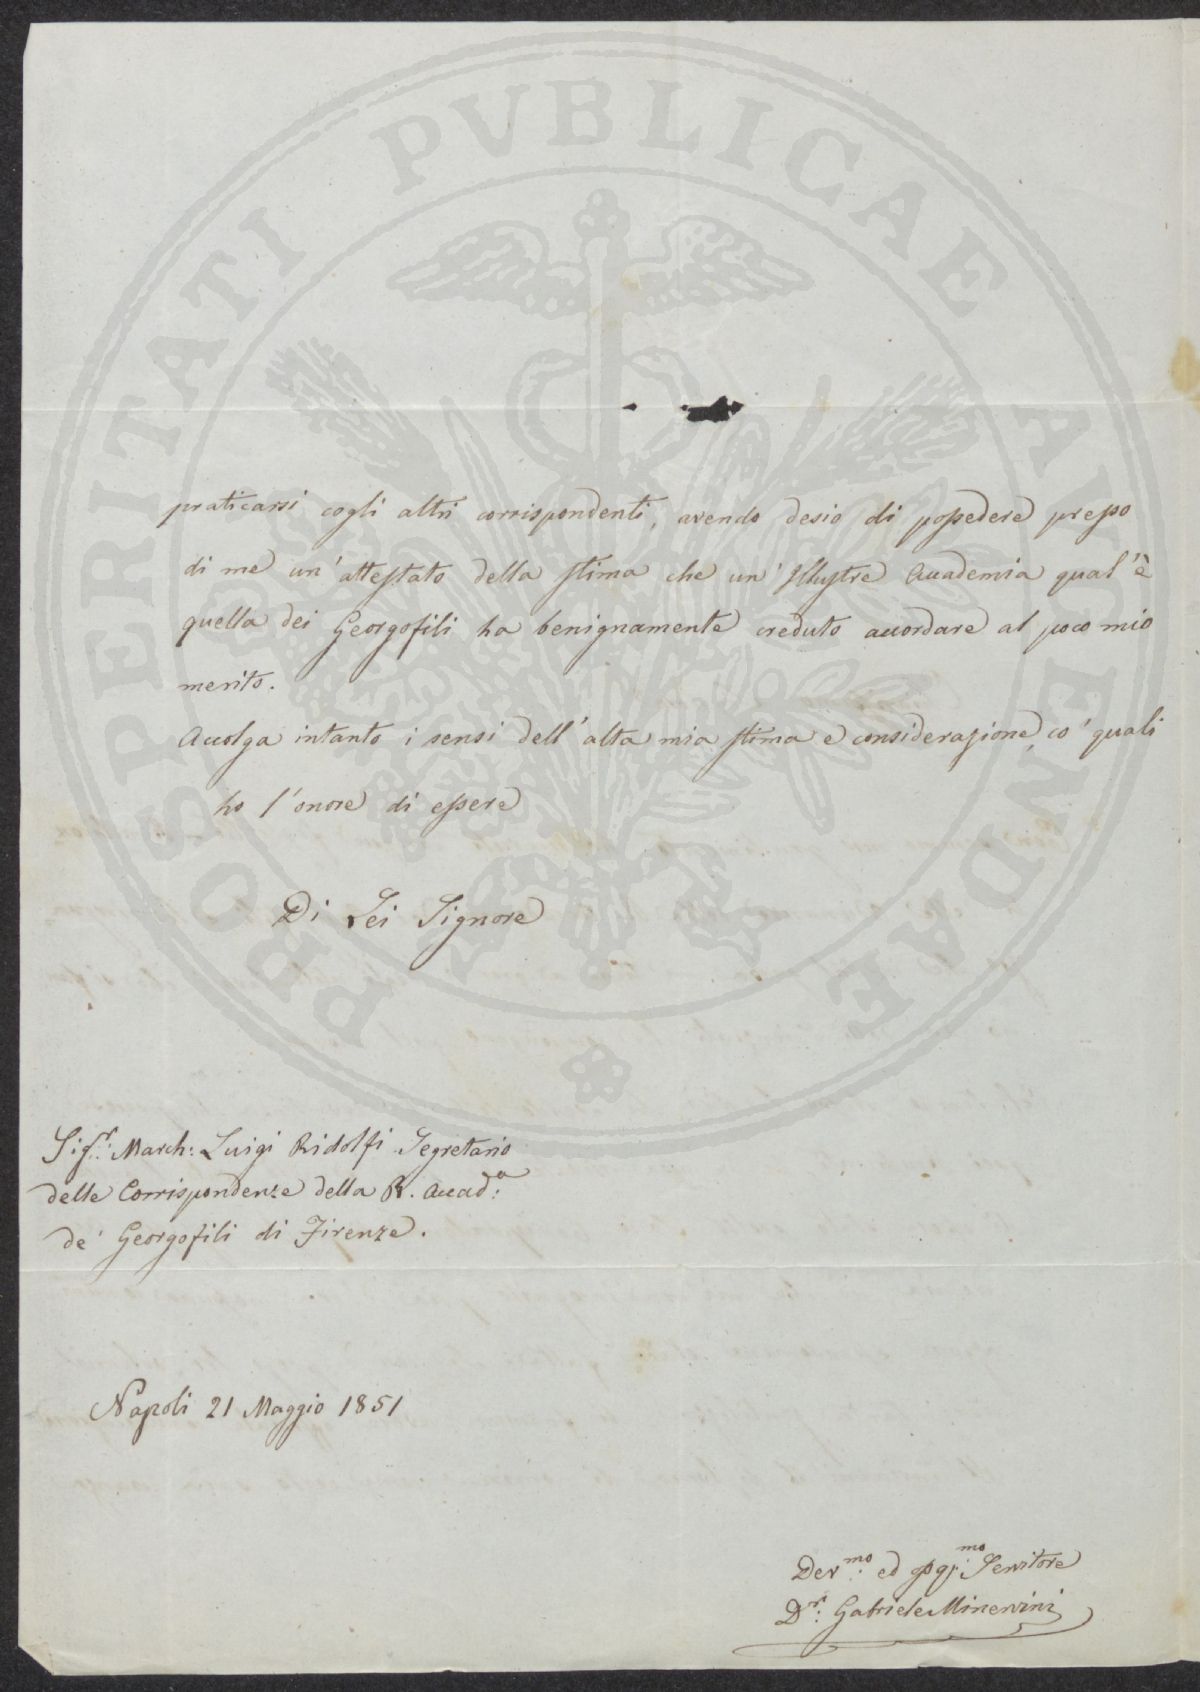 PROSPERITATI PVBLICAE AVGENDAE
praticarsi cogli altri corrispondenti, avendo desio di possedere presso
di me un'attestato della stima che un'Illustre Accademia qual'è
quella dei Georgofili ha benignamente creduto accordare al poco mio
merito.
Accolga intanto i sensi dell'alta mia stima e considerazione, co' quali
ho l'onore di essere
Di Lei Signore
Sig.r March: Luigi Ridolfi Segretario
delle Corrispondenze della R. Accad.a
de' Georgofili di Firenze.
Napoli 21 Maggio 1851
Dev.mo ed Servitore
D.r Gabriele Minervini